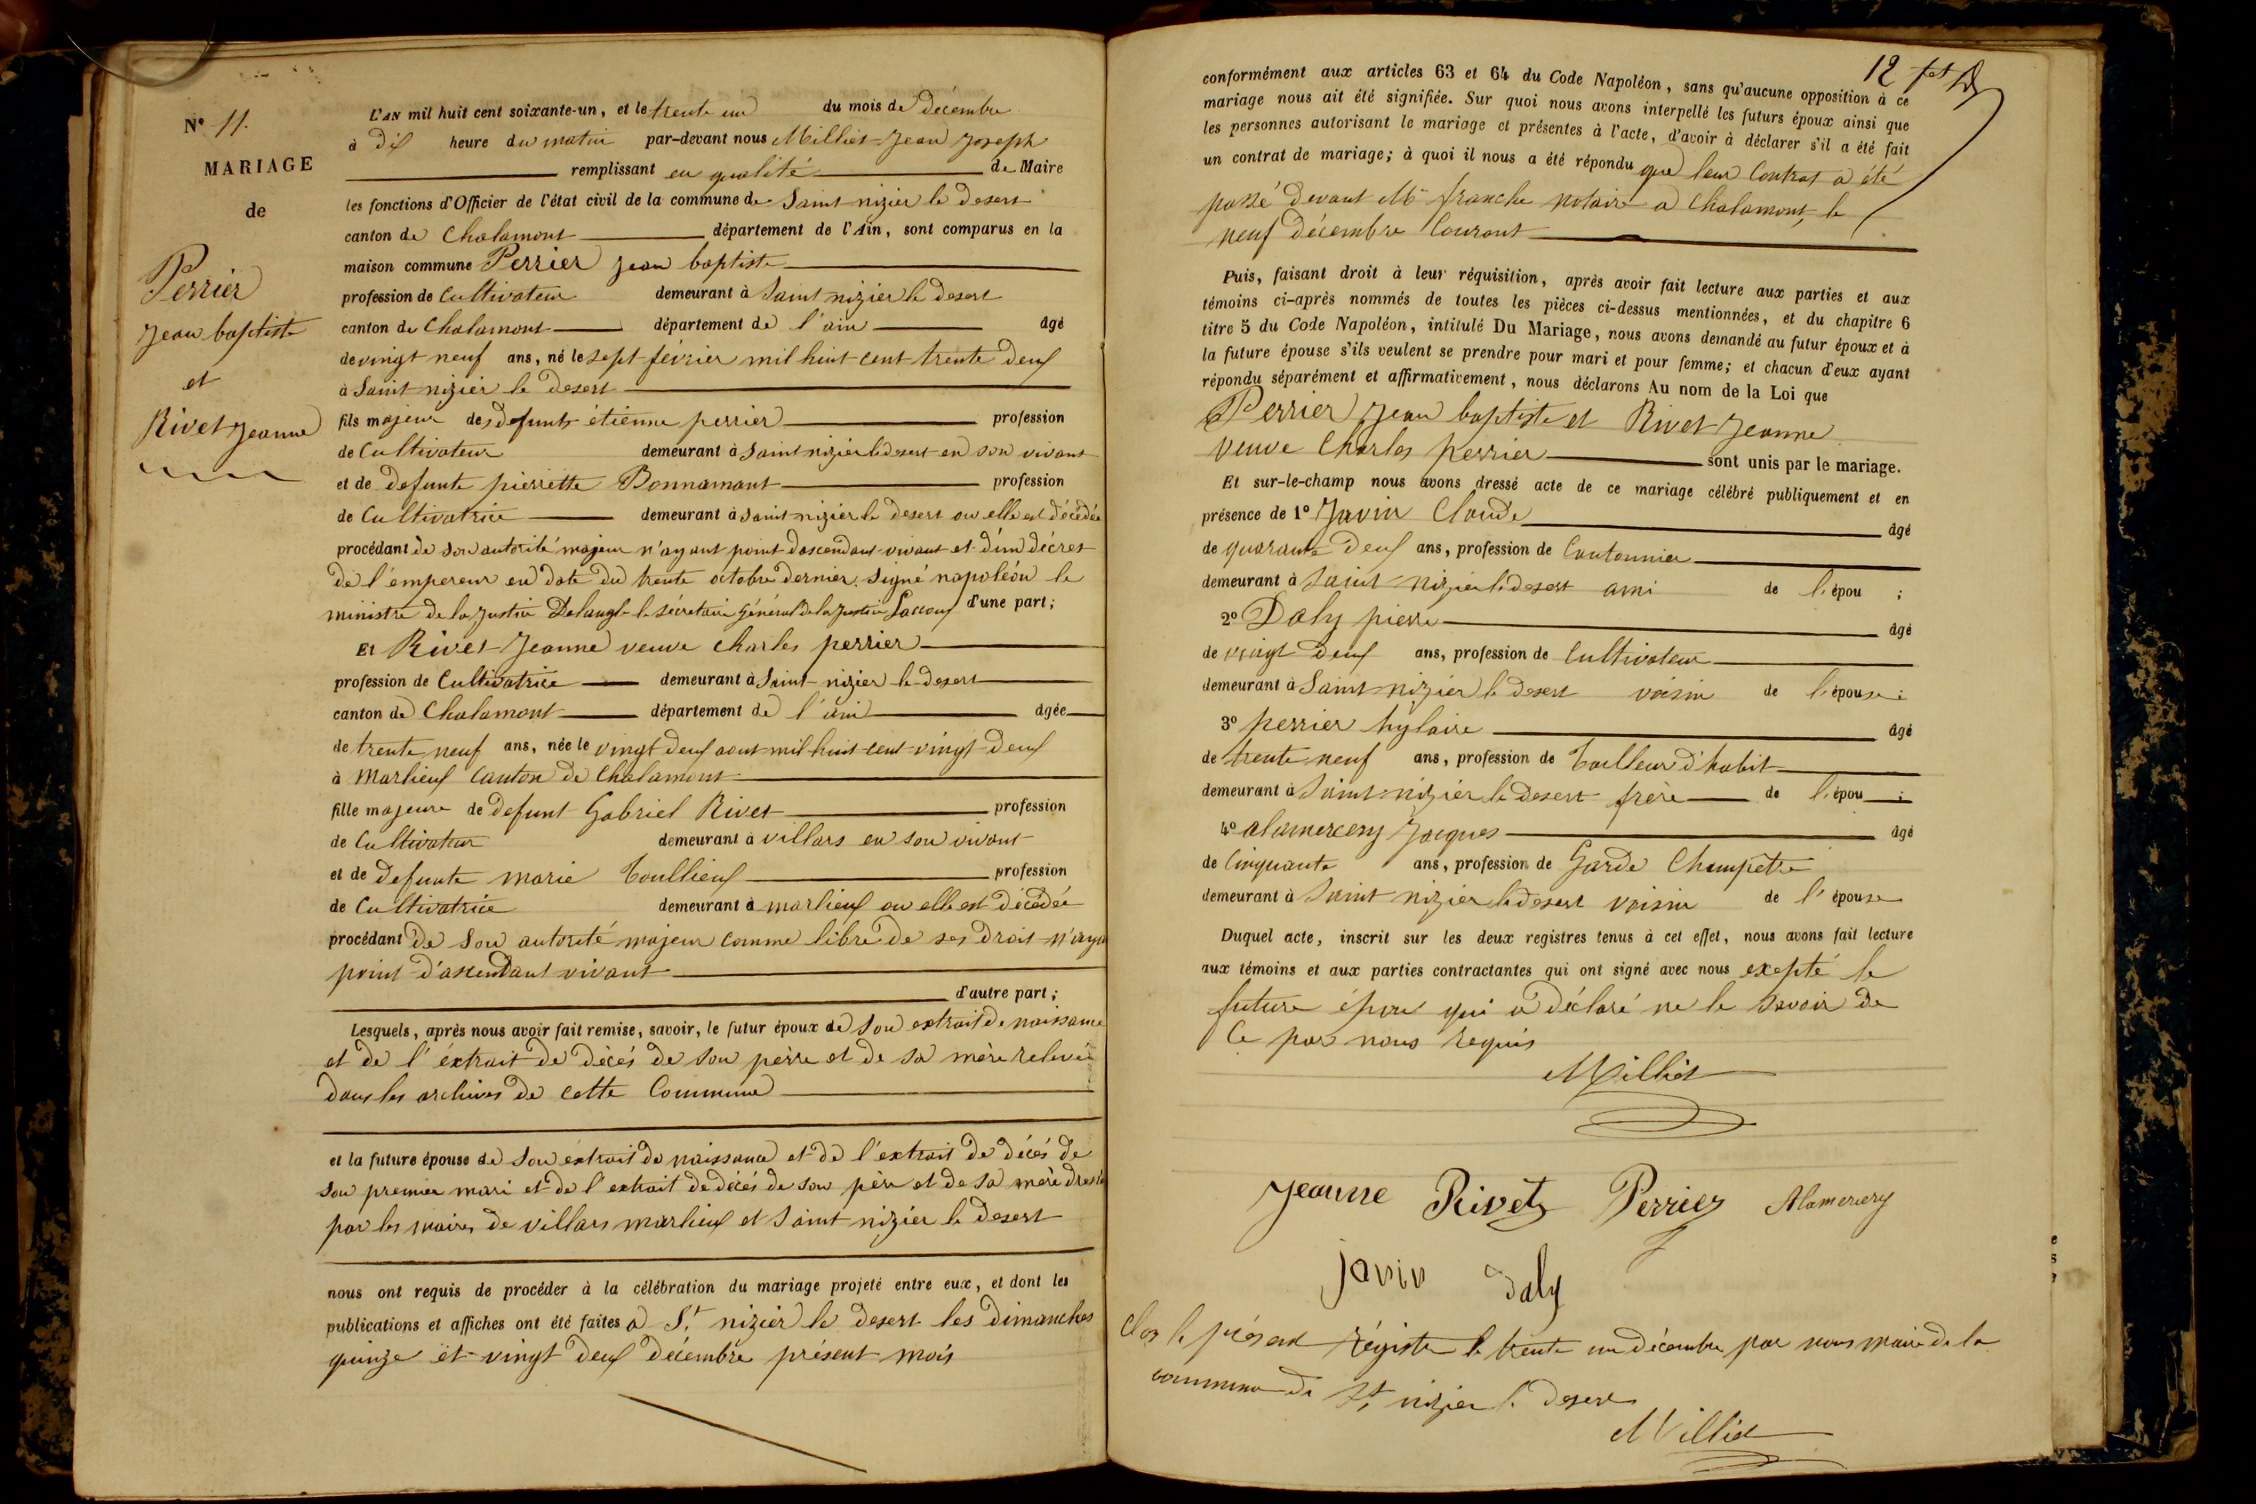 N° 11.
MARIAGE
de
Perrier
Jean baptiste
et
Rivet Jeanne
L'AN mil huit cent soixante-un, et le trente un du mois de décembre
à dix heure du matin par-devant nous Milliet Jean Joseph
remplissant en qualité de Maire
les fonctions d'Officier de l'état civil de la commune de Saint nizier le desert
canton de Chalamont département de l'Ain, sont comparus en la
maison commune Perrier Jean baptiste
profession de Cultivateur demeurant à Saint nizier le desert
canton de Chalamont département de l'ain âgé
de vingt neuf ans, né le sept février mil huit cent trente deux
à Saint nizier le desert
fils majeur des defunts étienne perrier profession
de Cultivateur demeurant à Saint nizier le desert en son vivant
et de defunte pierrette Bonnamant profession
de Cultivatrice demeurant à Saint nizier le desert ou elle est décédée
procédant de son autorité majeur n'ayant point d'ascendant vivant et d'un décret
de l'empereur en date du trente octobre dernier signé napoléon le
ministre de la Justice Delangle le sécretaire Général de la Justice d'une part;
Et Rivet Jeanne veuve Charles perrier
profession de Cultivatrice demeurant à Saint nizier le desert
canton de Chalamont département de l'ain âgée
de trente neuf ans, née le vingt deux aout mil huit cent vingt deux
à Marlieux Canton de Chalamont
fille majeure de defunt Gabriel Rivet profession
de Cultivateur demeurant à villars en son vivant
et de defunte marie Toullieux profession
de Cultivatrice demeurant à marlieux ou elle est décédée
procédant de Son autorité majeur comme libre de ses droit n'aya
point d'ascendant vivant
d'autre part;
Lesquels, après nous avoir fait remise, savoir, le futur époux de Son extrait de naissance
et de l'éxtrait de décés de son pèrre et de sa mère relevée
dans les archives de cette Commune
et la future épouse de Son éxtrait de naissance et de l'extrait de décés de
Son premier mari et de l'extrait de décés de son père et de sa mère dressés
par les maires de villars marlieux et Saint nizier le desert
nous ont requis de procéder à la célébration du mariage projeté entre eux, et dont les
publications et affiches ont été faites a St nizier le desert les dimanches
quinze et vingt deux décembre présent mois
12
conformément aux articles 63 et 64 du Code Napoléon, sans qu'aucune opposition à ce
mariage nous ait été signifiée. Sur quoi nous avons interpellé les futurs époux ainsi que
les personnes autorisant le mariage et présentes à l'acte, d'avoir à déclarer s'il a été fait
un contrat de mariage; à quoi il nous a été répondu que leur Contrat a été
passé devant Me franche notaire a Chalamont le
neuf décembre Courant
Puis, faisant droit à leur réquisition, après avoir fait lecture aux parties et aux
témoins ci-après nommés de toutes les pièces ci-dessus mentionnées, et du chapitre 6
titre 5 du Code Napoléon, intitulé Du Mariage, nous avons demandé au futur époux et à
la future épouse s'ils veulent se prendre pour mari et pour femme; et chacun d'eux ayant
répondu séparément et affirmativement, nous déclarons Au nom de la Loi que
Perrier Jean baptiste et Rivet Jeanne
veuve Charles perrier sont unis par le mariage.
Et sur-le-champ nous avons dressé acte de ce mariage célébré publiquement et en
présence de 1° Javin Claude âgé
de quarante deux ans, profession de Cantonnier
demeurant à Saint nizier le desert ami de l'épou ;
2° Daly pierre âgé
de vingt deux ans, profession de Cultivateur
demeurant à Saint nizier le desert voisin de l'épouse ;
3° perrier hylaire âgé
de trente neuf ans, profession de Tailleur d'habit
demeurant à Saint nizier le desert frère de l'épou ;
4° alamercery Jacques âgé
de Cinquante ans, profession de Garde Champetre
demeurant à Saint nizier le desert voisin de l'épouse
Duquel acte, inscrit sur les deux registres tenus à cet effet, nous avons fait lecture
aux témoins et aux parties contractantes qui ont signé avec nous exepté le
future épou qui a déclaré ne le savoir de
Ce par nous requis
Milliet
Jeanne Rivet Perrier Alamercery
javin daly
Clos le présent régistre le trente un décembre par nous maire de la
commune de St nizier le desert
Milliet